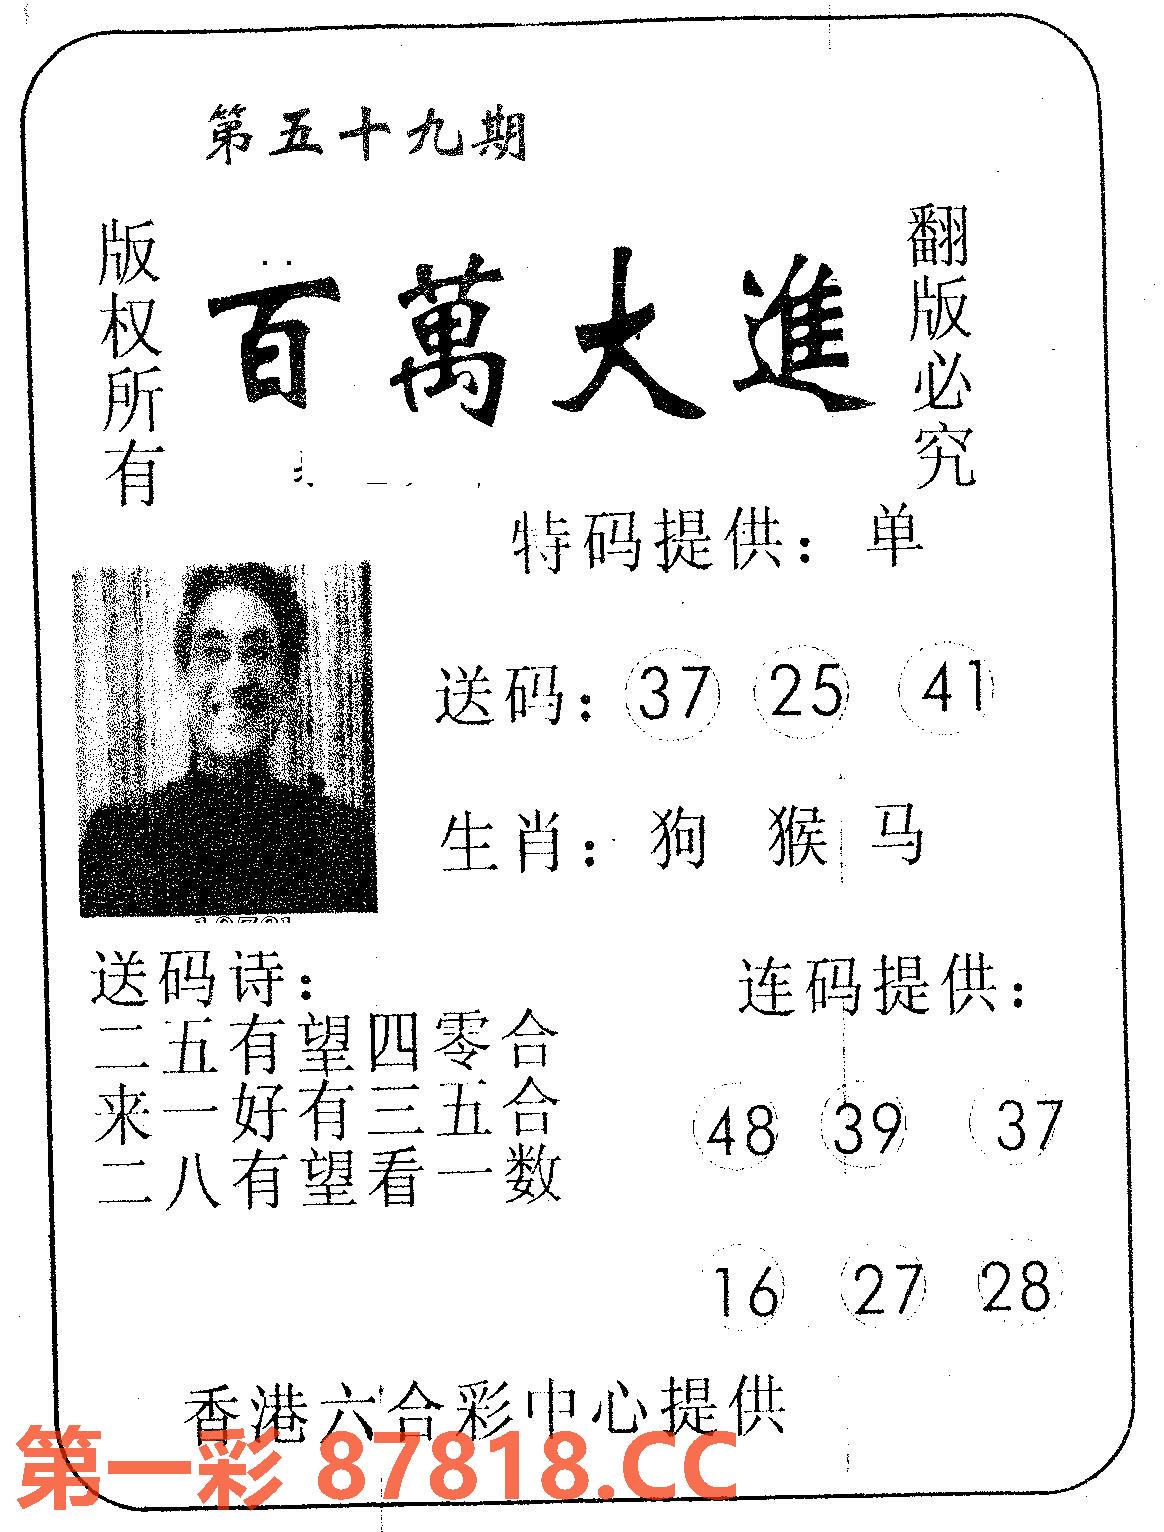 第五十九期
版权所有
百萬大進
翻版必究
特码提供：单
送码：37 25 41
生肖：狗 猴 马
送码诗：
二五有望四零合
来一好有三五合
二八有望看一数
连码提供：
48 39 37
16 27 28
香港六合彩中心提供
第一彩 87818.CC